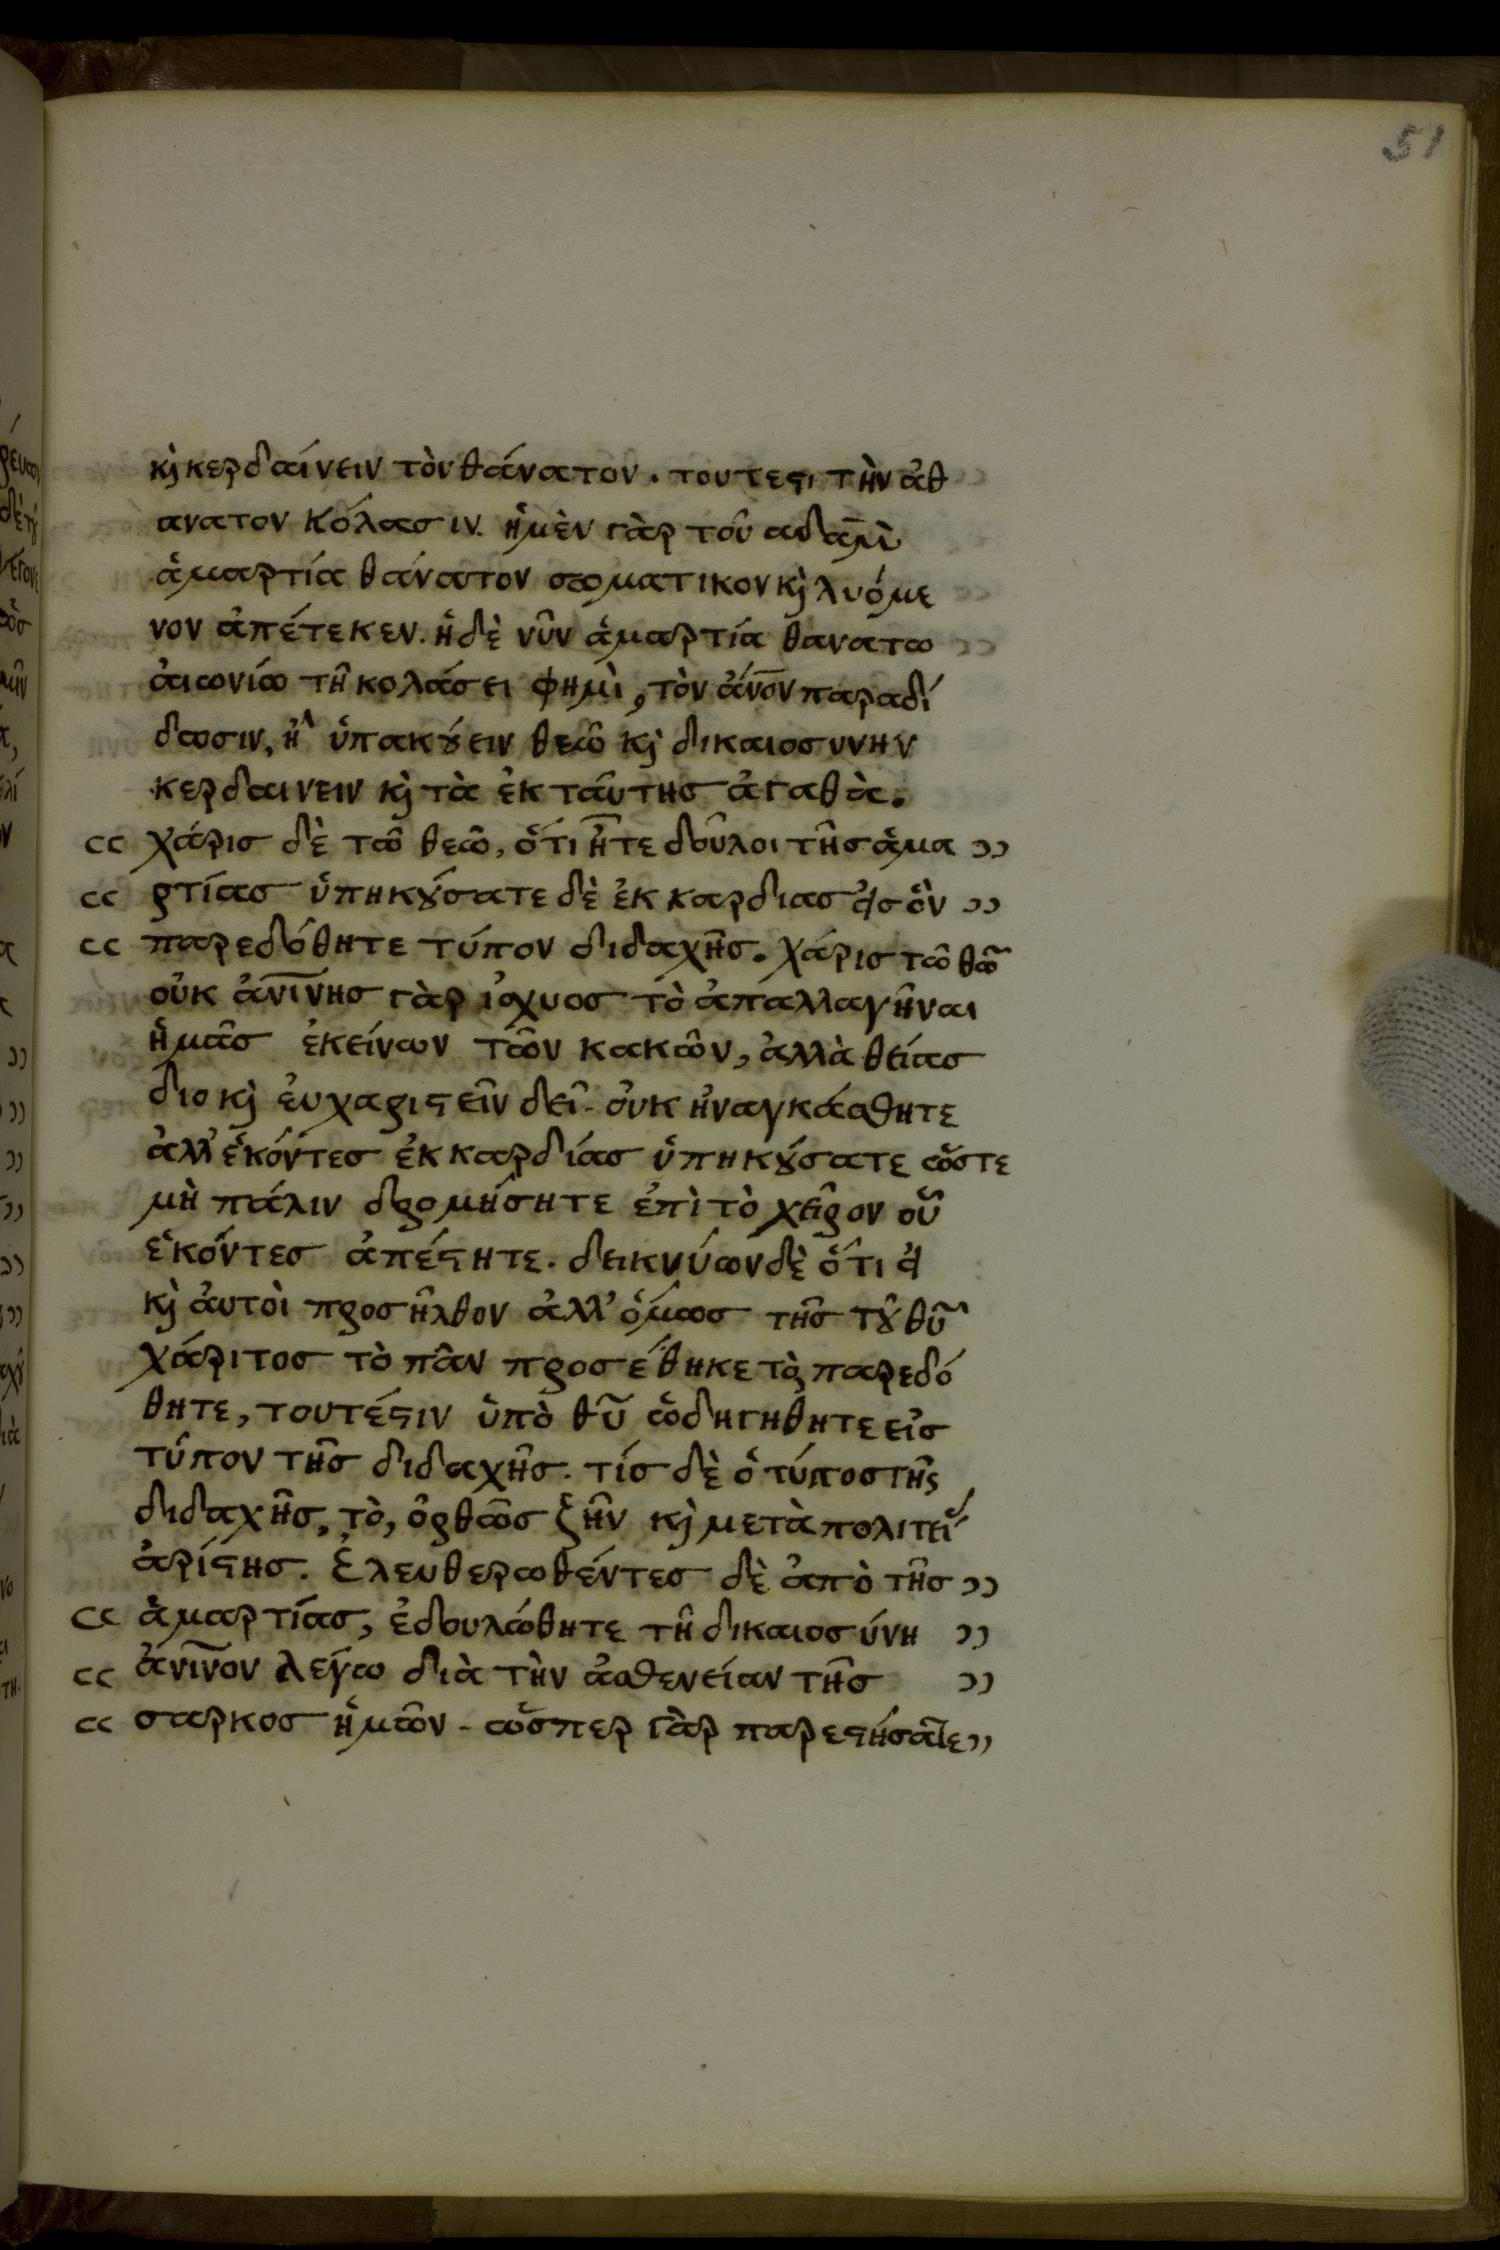 51
κὶ κερδαίνειν τὸν θάνατον. τουτεϛι τὴν ἀθ
ανατον κόλασιν. ἡ μὲν γὰρ τοῦ αδαμ̅
ἁμαρτία θάνατον σωματικον κὶ λυόμε
νον ἀπέτεκεν. ἡ δὲ νῦν ἁμαρτία θανατω
ἀιωνίω τῆ κολάσει φημὶ, τὸν ἄν̅ο̅ν παραδί
δωσιν, ἢ ὑπακȣ́ειν θεῶ κὶ δικαιοσυνην
κερδαινειν κὶ τὰ ἐκ ταῦτης ἀγαθὰ.
cc χάρις δὲ τῶ θεῶ, ὅτι ἦτε δοῦλοι τῆς ἁμα ɔɔ
cc ρτίας ὑπηκȣ́σατε δὲ ἐκ καρδιας εἰς ὃν ɔɔ
cc παρεδόθητε τύπον διδαχῆς. χάρις τῶ θῶ
οὐκ ἀν̅ι̅νης γὰρ ἰσχυος τὸ ἀπαλλαγῆναι
ἡμᾶς ἐκείνων τῶν κακῶν, ἀλλὰ θείας
διο κὶ ἐυχαριϛεῖν δεῖ. ὀυκ ἠναγκάσθητε
ἀλλ' ἑκόντες ἐκ καρδίας ὑπηκȣ́σατε ὥστε
μὴ πάλιν δρομήσητε ἐπὶ τὸ χεῖρον οὗ
ἑκόντες ἀπέϛητε. δεικνύων δὲ ὅτι εἰ
κὶ ἀυτοὶ προσῆλθον ἀλλ' ὅμως τῆς τȣ͂ θῦ
χάριτος τὸ πᾶν προσέθηκε τὸ, παρεδό
θητε, τουτέϛιν ὑπὸ θῦ ὡδηγηθητε εἰς
τύπον τῆς διδαχῆς. τίς δὲ ὁ τύπος τῆς
διδαχῆς, τὸ, ὀρθῶς ζῆν κὶ μετὰ πολιτεί
ἀρίϛης. Ἐλευθερωθέντες δὲ ἀπὸ τῆς ɔɔ
cc ἁμαρτίας, ἐδουλώθητε τῆ δικαιοσύνη ɔɔ
cc ἀν̅ι̅νον λεγω διὰ τὴν ἀσθενείαν τῆς ɔɔ
cc σαρκος ἡμῶν. ὥσπερ γὰρ παρεϛήσατε ɔɔ